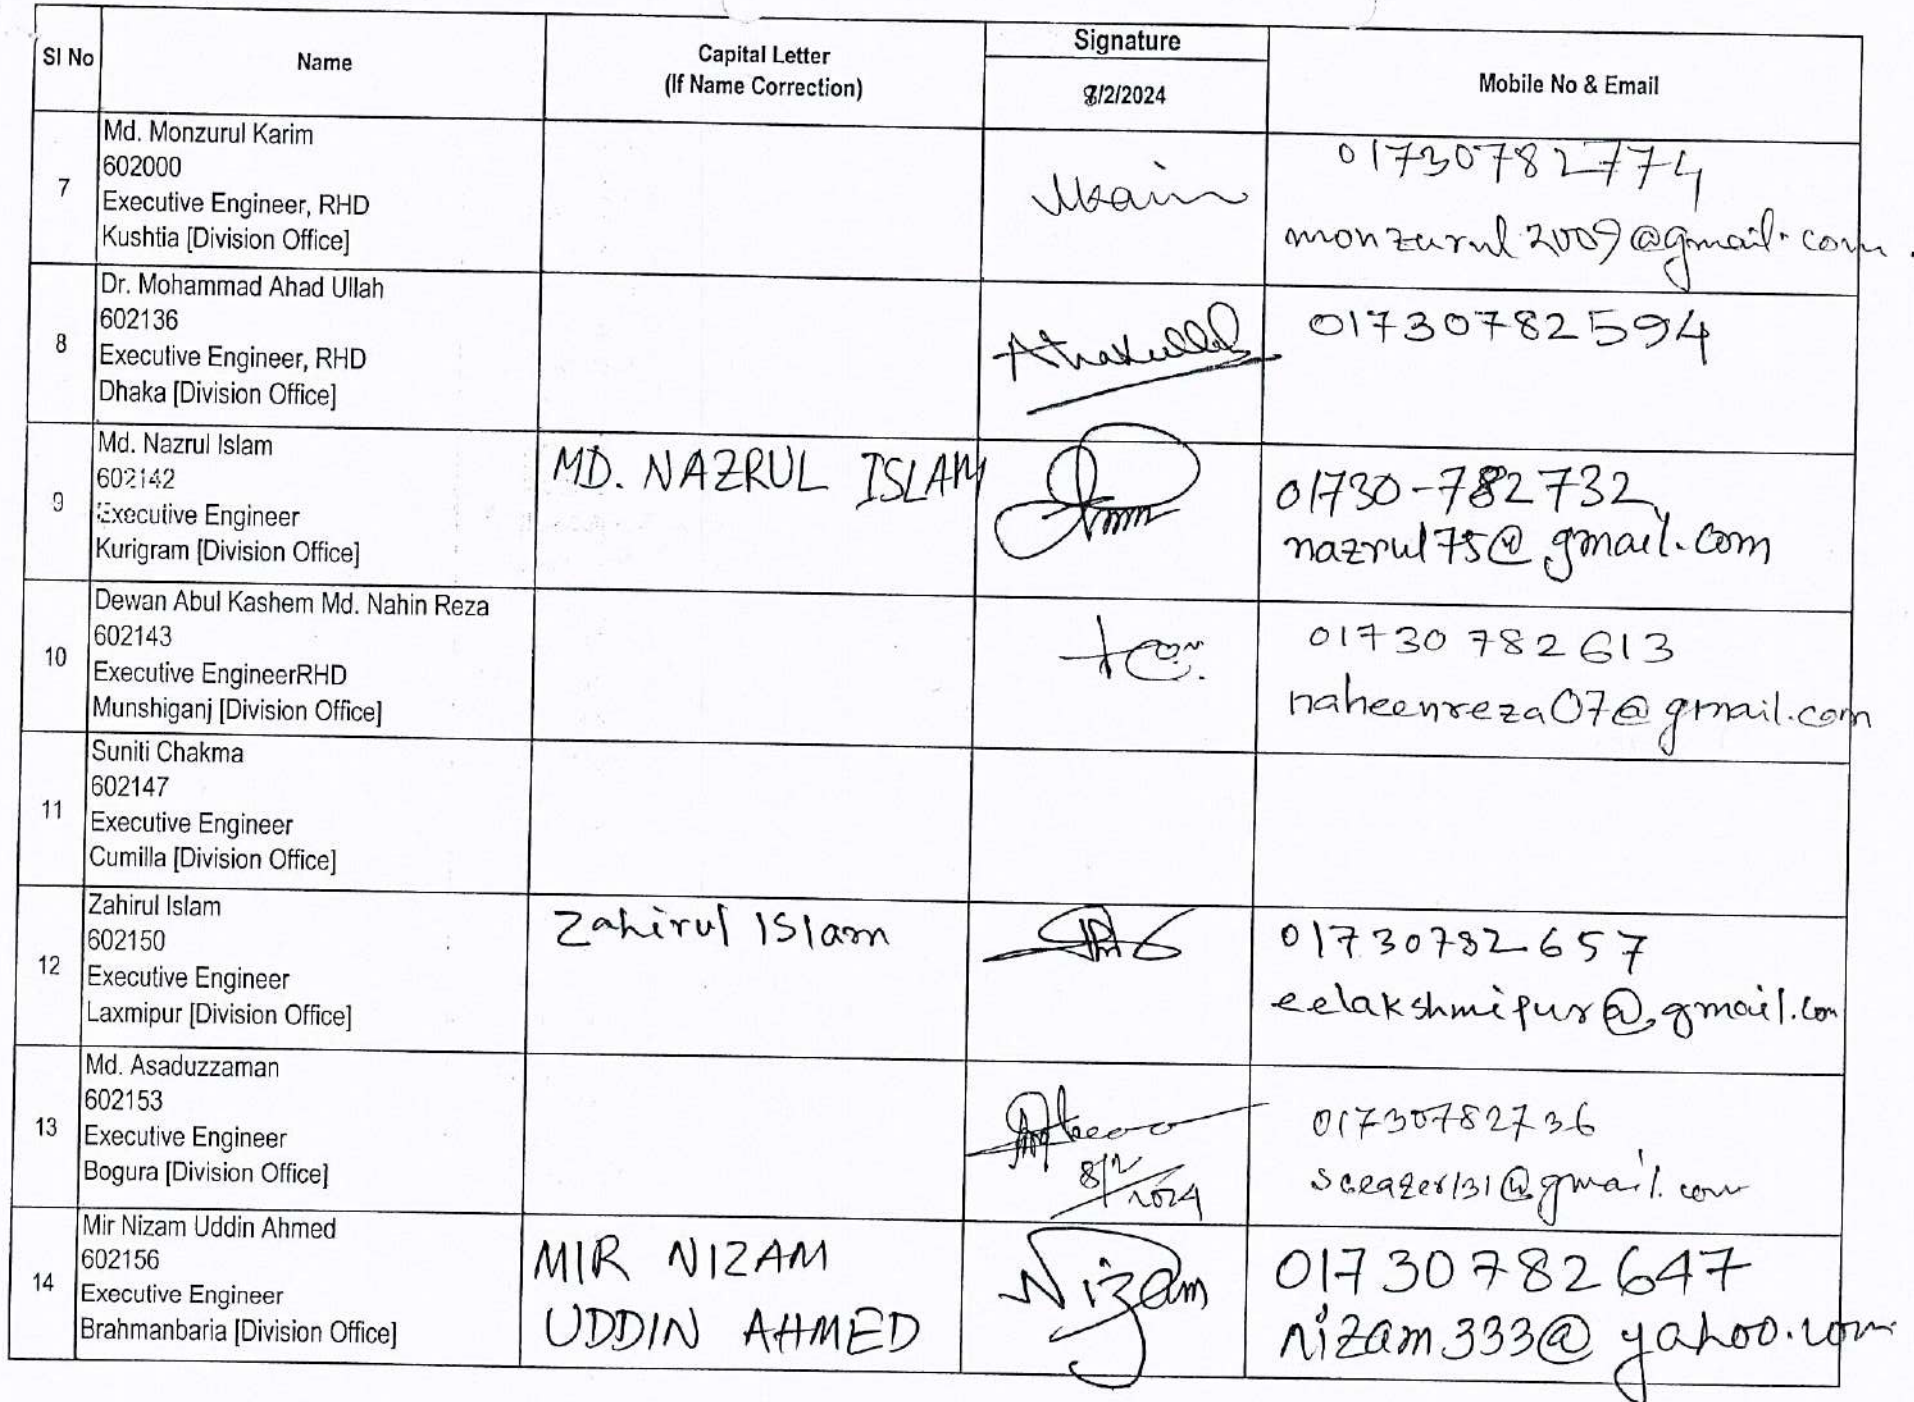 Sl No
Name
Capital Letter
(If Name Correction)
Signature
8/2/2024
Mobile No & Email
7
Md. Monzurul Karim
602000
Executive Engineer, RHD
Kushtia [Division Office]
01730782774
monzurul2009@gmail.com.
8
Dr. Mohammad Ahad Ullah
602136
Executive Engineer, RHD
Dhaka [Division Office]
01730782594
9
Md. Nazrul Islam
602142
Executive Engineer
Kurigram [Division Office]
MD. NAZRUL ISLAM
01730-782732
nazrul75@gmail.com
10
Dewan Abul Kashem Md. Nahin Reza
602143
Executive EngineerRHD
Munshiganj [Division Office]
01730 782613
naheenreza07@gmail.com
11
Suniti Chakma
602147
Executive Engineer
Cumilla [Division Office]
12
Zahirul Islam
602150
Executive Engineer
Laxmipur [Division Office]
Zahirul Islam
01730782657
eelakshmipur@gmail.com
13
Md. Asaduzzaman
602153
Executive Engineer
Bogura [Division Office]
8/2/2024
01730782736
14
Mir Nizam Uddin Ahmed
602156
Executive Engineer
Brahmanbaria [Division Office]
MIR NIZAM
UDDIN AHMED
Nizam
01730782647
nizam333@yahoo.com